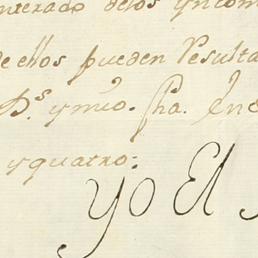 enterado delos yncon
de ellos pueden Resulta
D.s y mio. fha. En
y quatro:
yo El